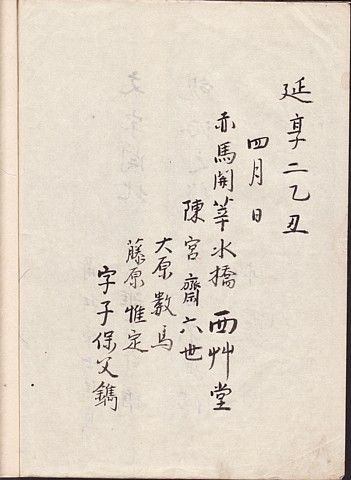 延享二乙丑
四月日
赤馬關莘水橋 西艸堂
陳宮齋六世
大原數馬
藤原惟定
字子保父鐫